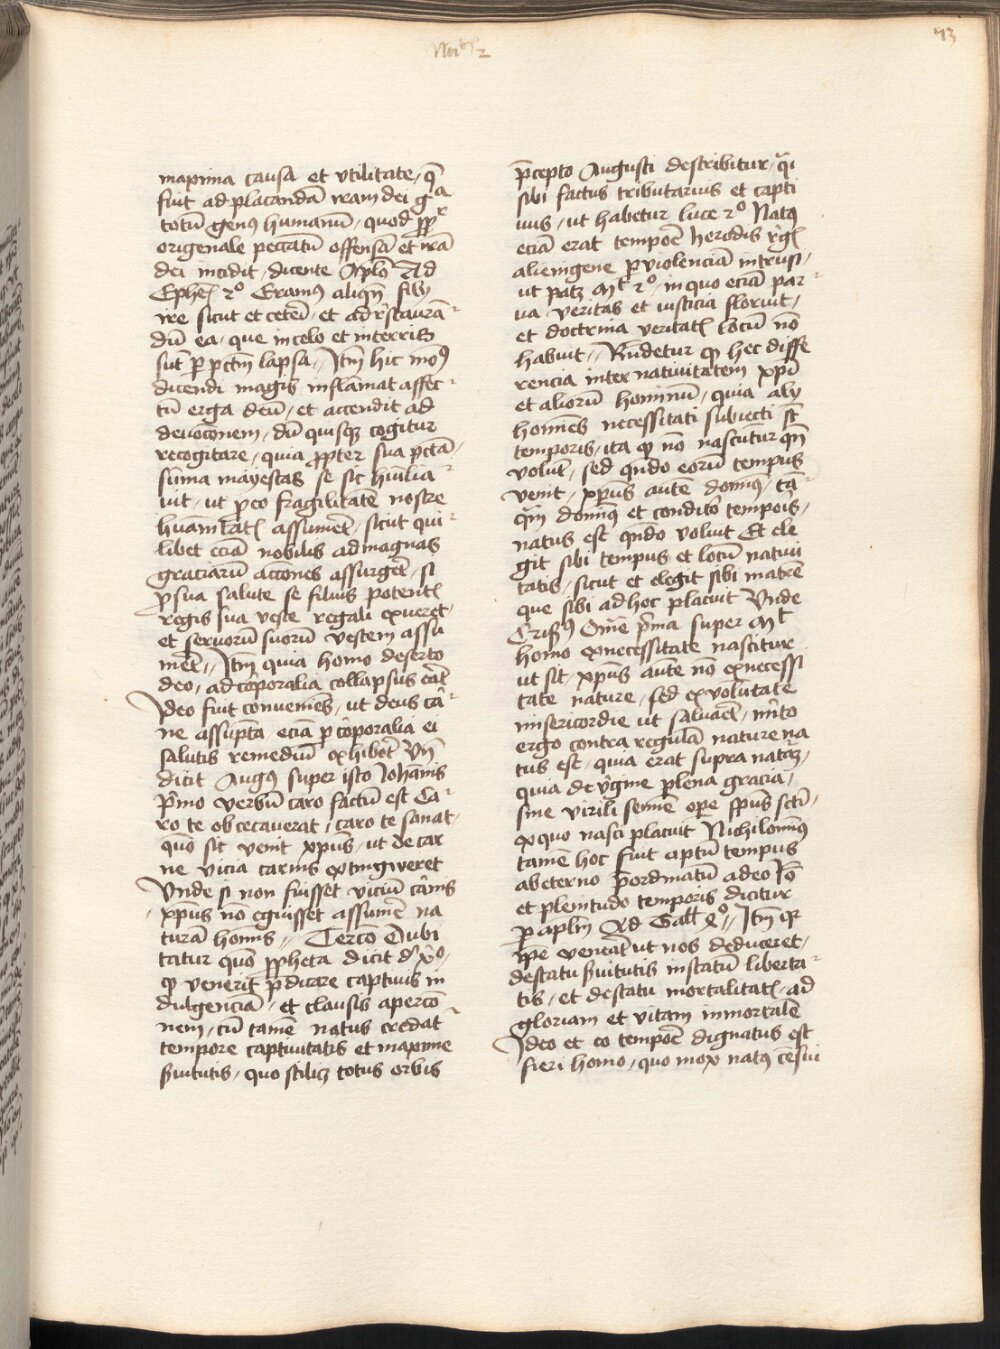 73
maxima causa et vtilitate, q̄
fuit ad placandā iram dei ↄ̄ᵃ
totū genus humanū, quod ꝓp̄ʳ
origenale peccatū offensā et irā
dei incidit, dicente Ap̄lō Ad
Ephes̄ 2º Eramꝰ aliqn̄ filij
ire sicut et ceteri, et ad r̄staurā-
dū ea, que in celo et in terris
sūt ꝑ pctm̄ lapsa, Itm̄ hic modꝰ
dicendi magis inflamat affec-
tū erga deū, et accendit ad
deuocōnem, dū quisqȝ cogitur
recogitare, quia ꝓpter sua pctā,
sūma mayestas se sic hūilia-
uit, ut ꝓco fragilitatē nostre
hūanitatꝭ assumēt, sicut qui-
libet eciā nobilis ad magnas
graciarū accōnes assurgēt, si
ꝓ sua salute se filius potentꝭ
regis sua veste regali exueret,
et seruorū suorū vestem assu
mēt, Itm̄ quia homo deserto
deo, ad cōꝑoralia collapsus erāt
Ideo fuit conueniēs, ut deus cā-
ne assūpta eciā ꝑ cōꝑoralia ei
salutis remediū exhibēt Vn̄
dicit Augꝰ super isto Iohānis
p̄mo verbū caro factū est Ca-
ro te obcecauerat, caro te sanat,
quō sic venit xp̄us, ut de car
ne vicia carnis extingweret
Vnde si non fuisset viciū cānis
xp̄us nō eguisset assumē na
turā hōnis, Tercō Dubi
tatur quō ꝓpheta dicit
qꝫ venerit p̄dicare captiuis in
dulgenciā, et clausis apercō
nem, cū tamē natus credat̄
tempore captiuitatis et maxime
ẜuitutis, quo scilicȝ totus orbis
p̄cepto Augusti describitur, qͥ
sibi factus tributarius et capti
uus, ut habetur luce 2º Natꝰ
eciā erat tempoē herodis rēgꝭ
alieingene ꝑ violenciā intrusi,
ut patȝ Mᵗ 2º, in quo eciā par-
ua veritas et iusticia floruit,
et doctrina veritatꝭ locū nō
habuit, Rn̄detur qꝫ hec diffe
rencia inter natiuitatem xp̄i
et aliorū hominū, quia alij
homīes necessitati subiecti sūt
temporis, ita qꝫ nō nascūtur qn̄
volūt, sed qn̄do eorū tempus
venit, xp̄us autē domīꝰ, tā-
qͣm domīꝰ et conditor̄ tempoīs,
natus est qn̄do voluit Et ele
git sibi tempus et locū natiui
tatis, sicut et elegit sibi matrē
que sibi ad hoc placuit Vnde
Crisꝰ Omē p̄ma super Mᵗ
homo ex necessitate nascitur
ut sit, xp̄us autē nō ex necessi
tate nature, sed ex volūtate
misericordie ut saluaēt, m̄ito
ergo contra regulā nature na
tus est, quia erat supra naturā,
quia de v̄gine plena gracia,
sine virili semīe oꝑe sp̄us scti,
ex quo nasci placuit Nichilomīꝰ
tamē hoc fuit aptū tempus
ab eterno p̄ordinatū a deo Iō
et plenitudo temporis dicitur
ꝑ apl̄m Ad Gall̄ 4º, Itm̄ qꝛ
ip̄e venerat ut nos deduceret,
de statu ẜuitutis in statū liberta-
tis, et de statu mortalitatꝭ, ad
gloriam et vitam inmortalē
Ideo et eo tempoē dignatus est
fieri homo, quo mox natꝰ